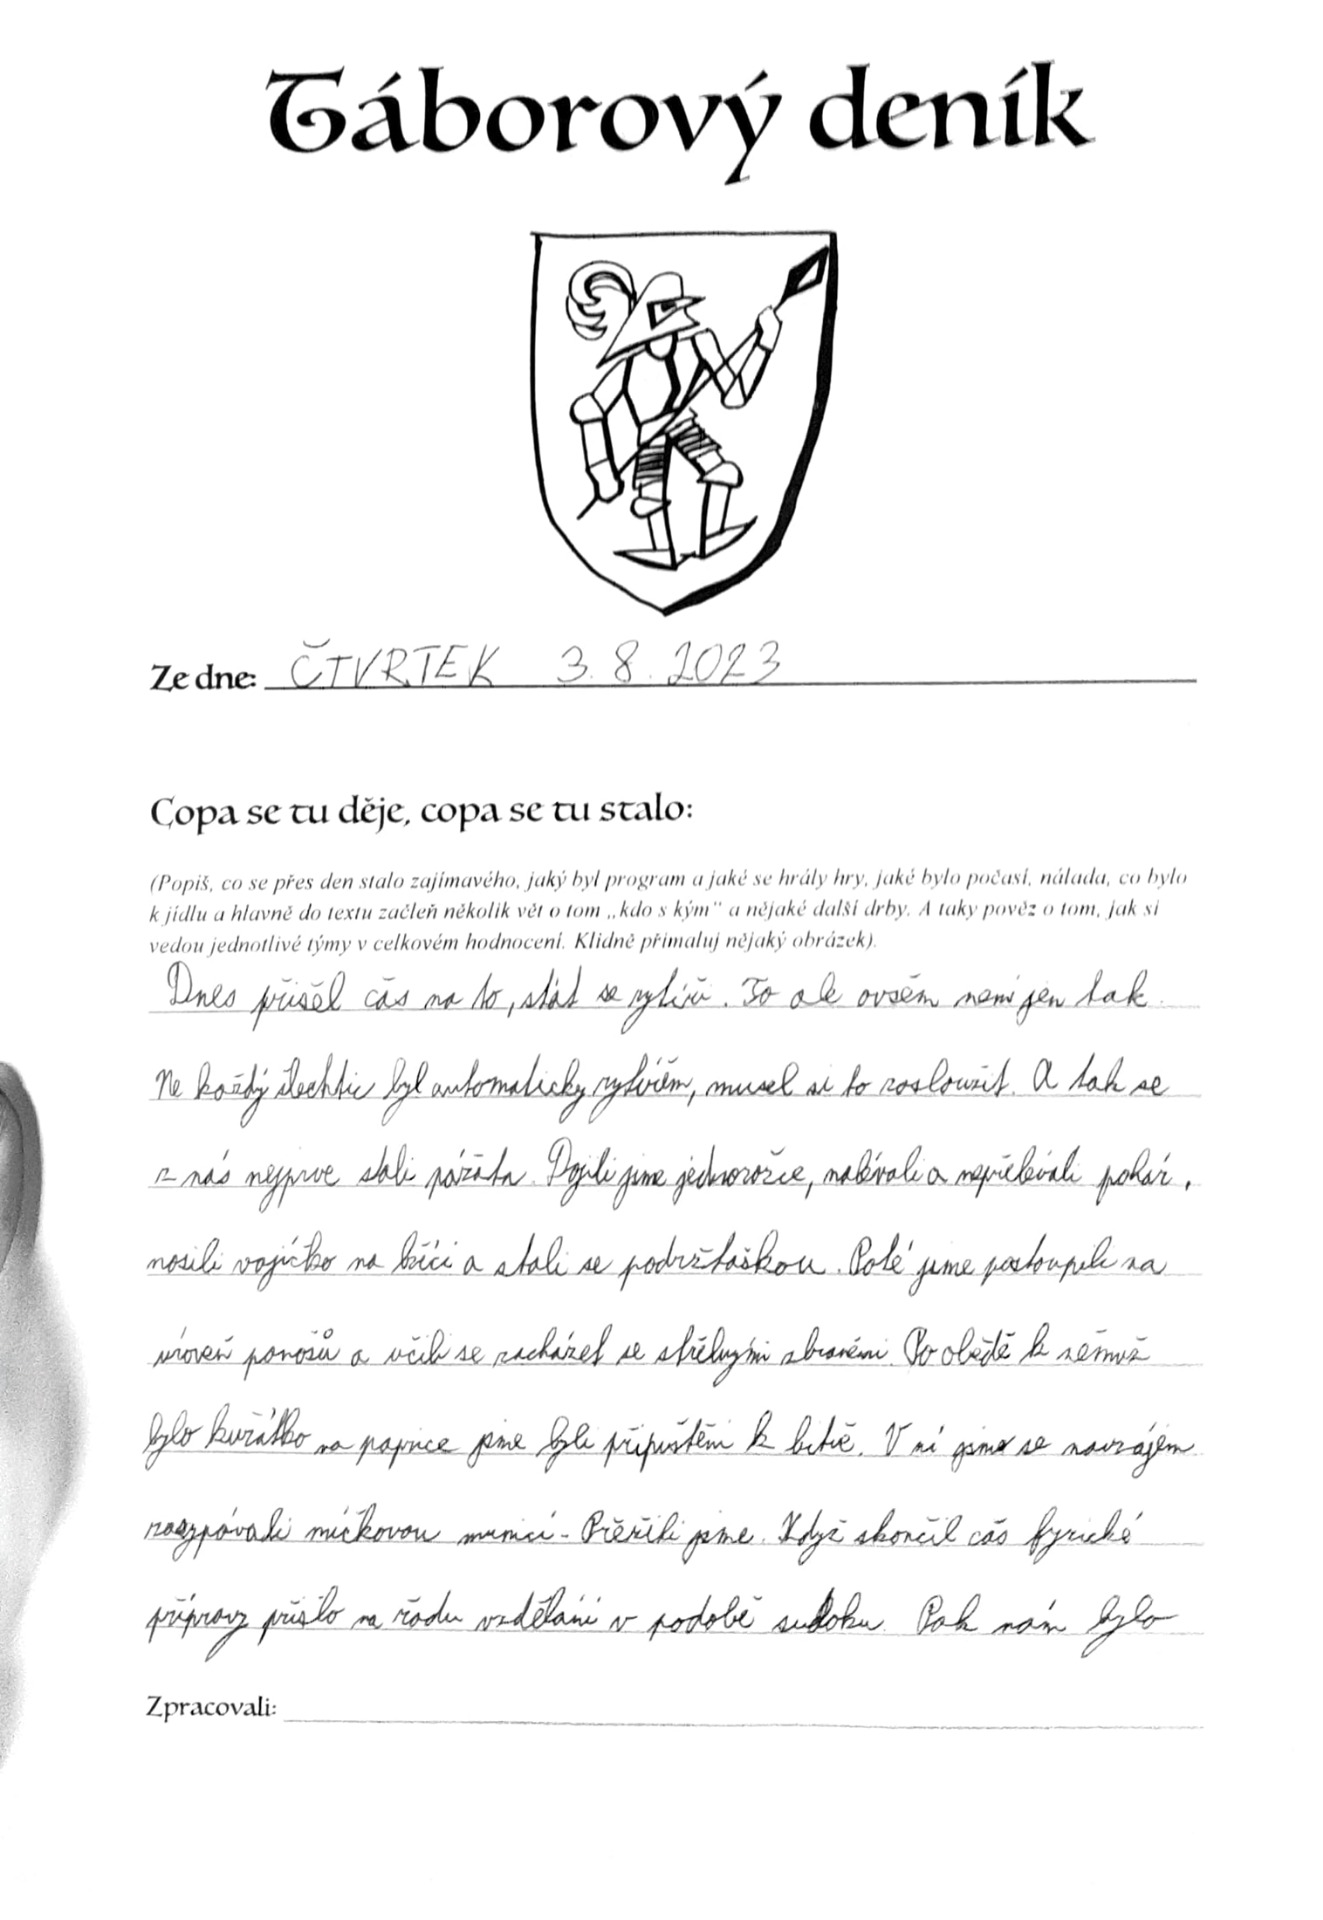 Táborový deník
Ze dne: ČTVRTEK 3. 8. 2023
Copa se tu děje, copa se tu stalo:
(Popiš, co se přes den stalo zajímavého, jaký byl program a jaké se hrály hry, jaké bylo počasí, nálada, co bylo
k jídlu a hlavně do textu začleň několik vět o tom „kdo s kým“ a nějaké další drby. A taky pověz o tom, jak si
vedou jednotlivé týmy v celkovém hodnocení. Klidně přimaluj nějaký obrázek).
Dnes přišel čas na to, stát se rytíři. To ale ovšem není jen tak
Ne každý šlechtic byl automaticky rytířem, musel si to zasloužit. A tak se
z nás nejprve stali pážata. Pojili jsme jednorožce, nalévali a nepřelévali pohár,
nosili vajíčko na lžíci a stali se podržtaškou. Poté jsme postoupili na
úroveň panošů a učili se zacházet se střelnými zbraněmi. Po obědě k němuž
bylo kuřátko na paprice jsme byli připuštěni k bitvě. V ní jsme se navzájem
zasypávali míčkovou municí - Přežili jsme. Když skončil čas fyzické
přípravy přišlo na řadu vzdělání v podobě sudoku. Pak nám bylo
Zpracovali: